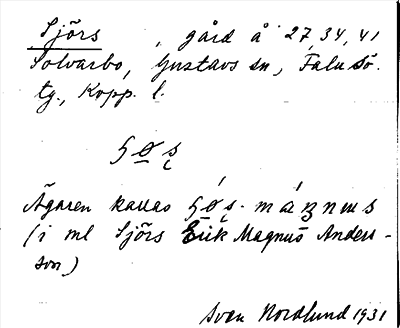 Sjörs , gård å 27, 34, 41
Solvarbo, Gustavs sn, Falu Sö.
tg., Kopp. l.
Ägaren kallas
(i ml Sjörs Erik Magnus Anders-
son)
Sven Nordlund 1931